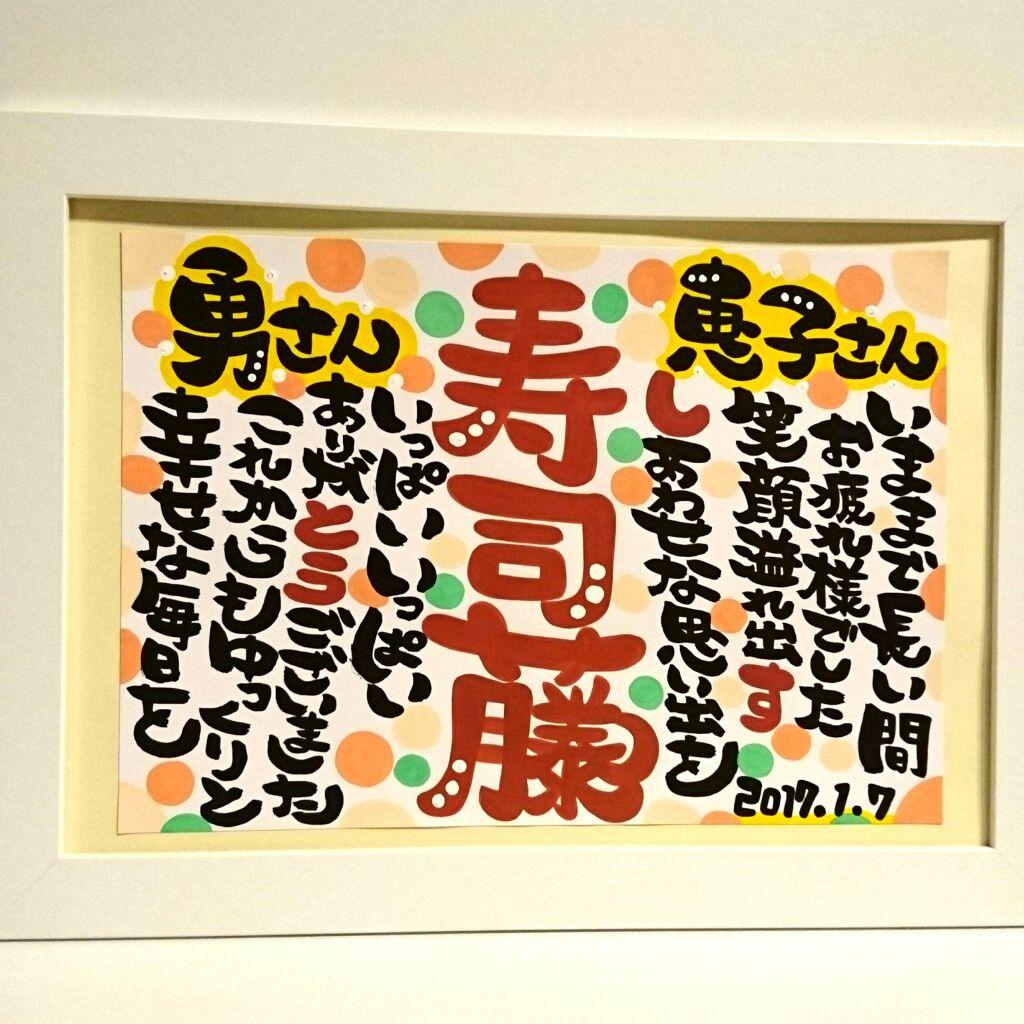 恵子さん
いままで長い間
お疲れ様でした
笑顔溢れ出す
しあわせな思い出を
寿司藤
勇さん
いっぱいいっぱい
ありがとうございました
これからもゆっくりと
幸せな毎日を
2017.1.7